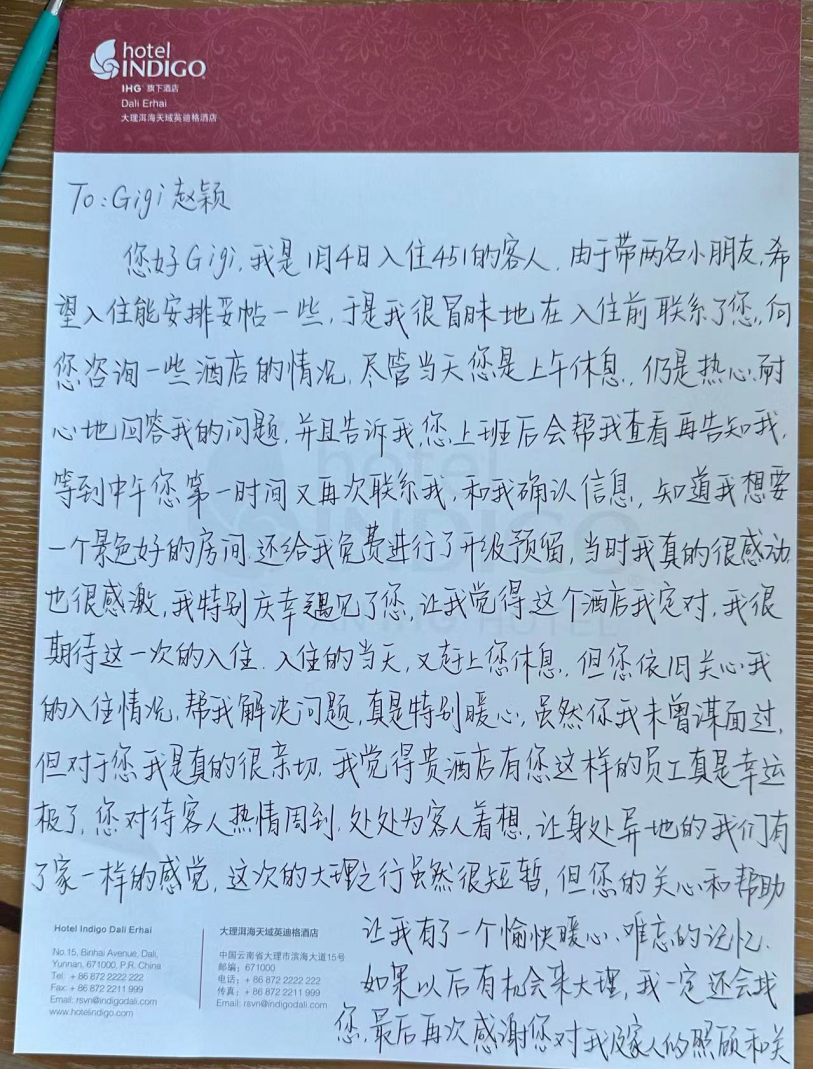 hotel
INDIGO
IHG 旗下酒店
Dali Erhai
大理洱海天域英迪格酒店
To: Gigi 赵颖
您好Gigi,我是1月4日入住451的客人,由于带两名小朋友,希
望入住能安排妥帖一些,于是我很冒昧地在入住前联系了您,向
您咨询一些酒店的情况,尽管当天您是上午休息,仍是热心、耐
心地回答我的问题,并且告诉我,您上班后会帮我查看再告知我,
等到中午您第一时间又再次联系我,和我确认信息,知道我想要
一个景色好的房间,还给我免费进行了升级预留,当时我真的很感动
也很感激,我特别庆幸遇见了您,让我觉得这个酒店我定对,我很
期待这一次的入住.入住的当天,又赶上您休息,但您依旧关心我
的入住情况,帮我解决问题,真是特别暖心,虽然你我未曾谋面过,
但对于您我是真的很亲切,我觉得贵酒店有您这样的员工真是幸运
极了,您对待客人热情周到,处处为客人着想,让身处异地的我们有
了家一样的感觉,这次的大理之行虽然很短暂,但您的关心和帮助
让我有了一个愉快暖心、难忘的记忆.
如果以后有机会来大理,我一定还会找
您,最后再次感谢您对我及家人的照顾和关
Hotel Indigo Dali Erhai
No.15, Binhai Avenue, Dali,
Yunnan, 671000, P.R. China
Tel: + 86 872 2222 222
Fax: + 86 872 2211 999
Email: rsvn@indigodali.com
www.hotelindigo.com
大理洱海天域英迪格酒店
中国云南省大理市滨海大道15号
邮编:671000
电话:+ 86 872 2222 222
传真:+ 86 872 2211 999
Email: rsvn@indigodali.com
hotel
INDIGO
AN IHG HOTEL